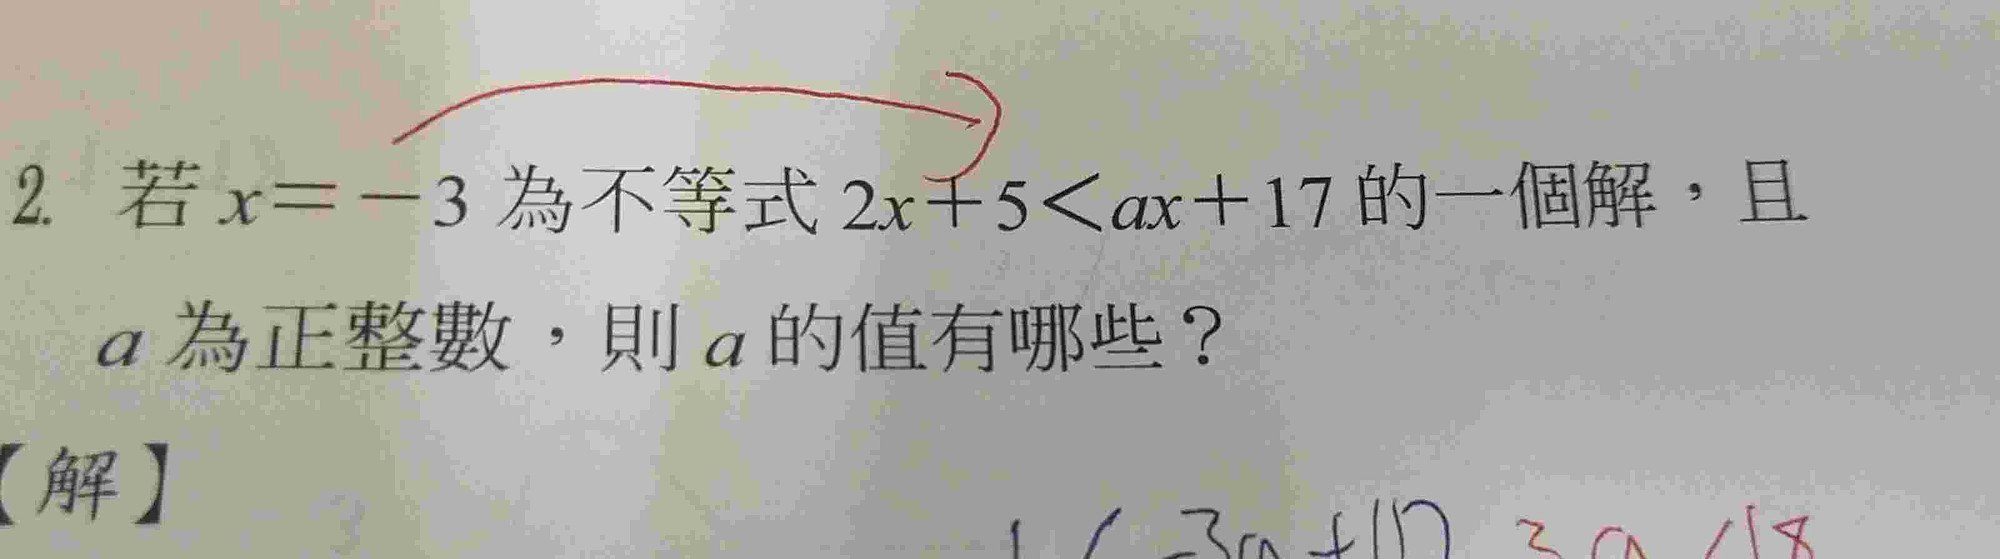 2. 若 x＝－3 為不等式 2x＋5＜ax＋17 的一個解，且
a 為正整數，則 a 的值有哪些？
【解】
-3a+17 3a<18